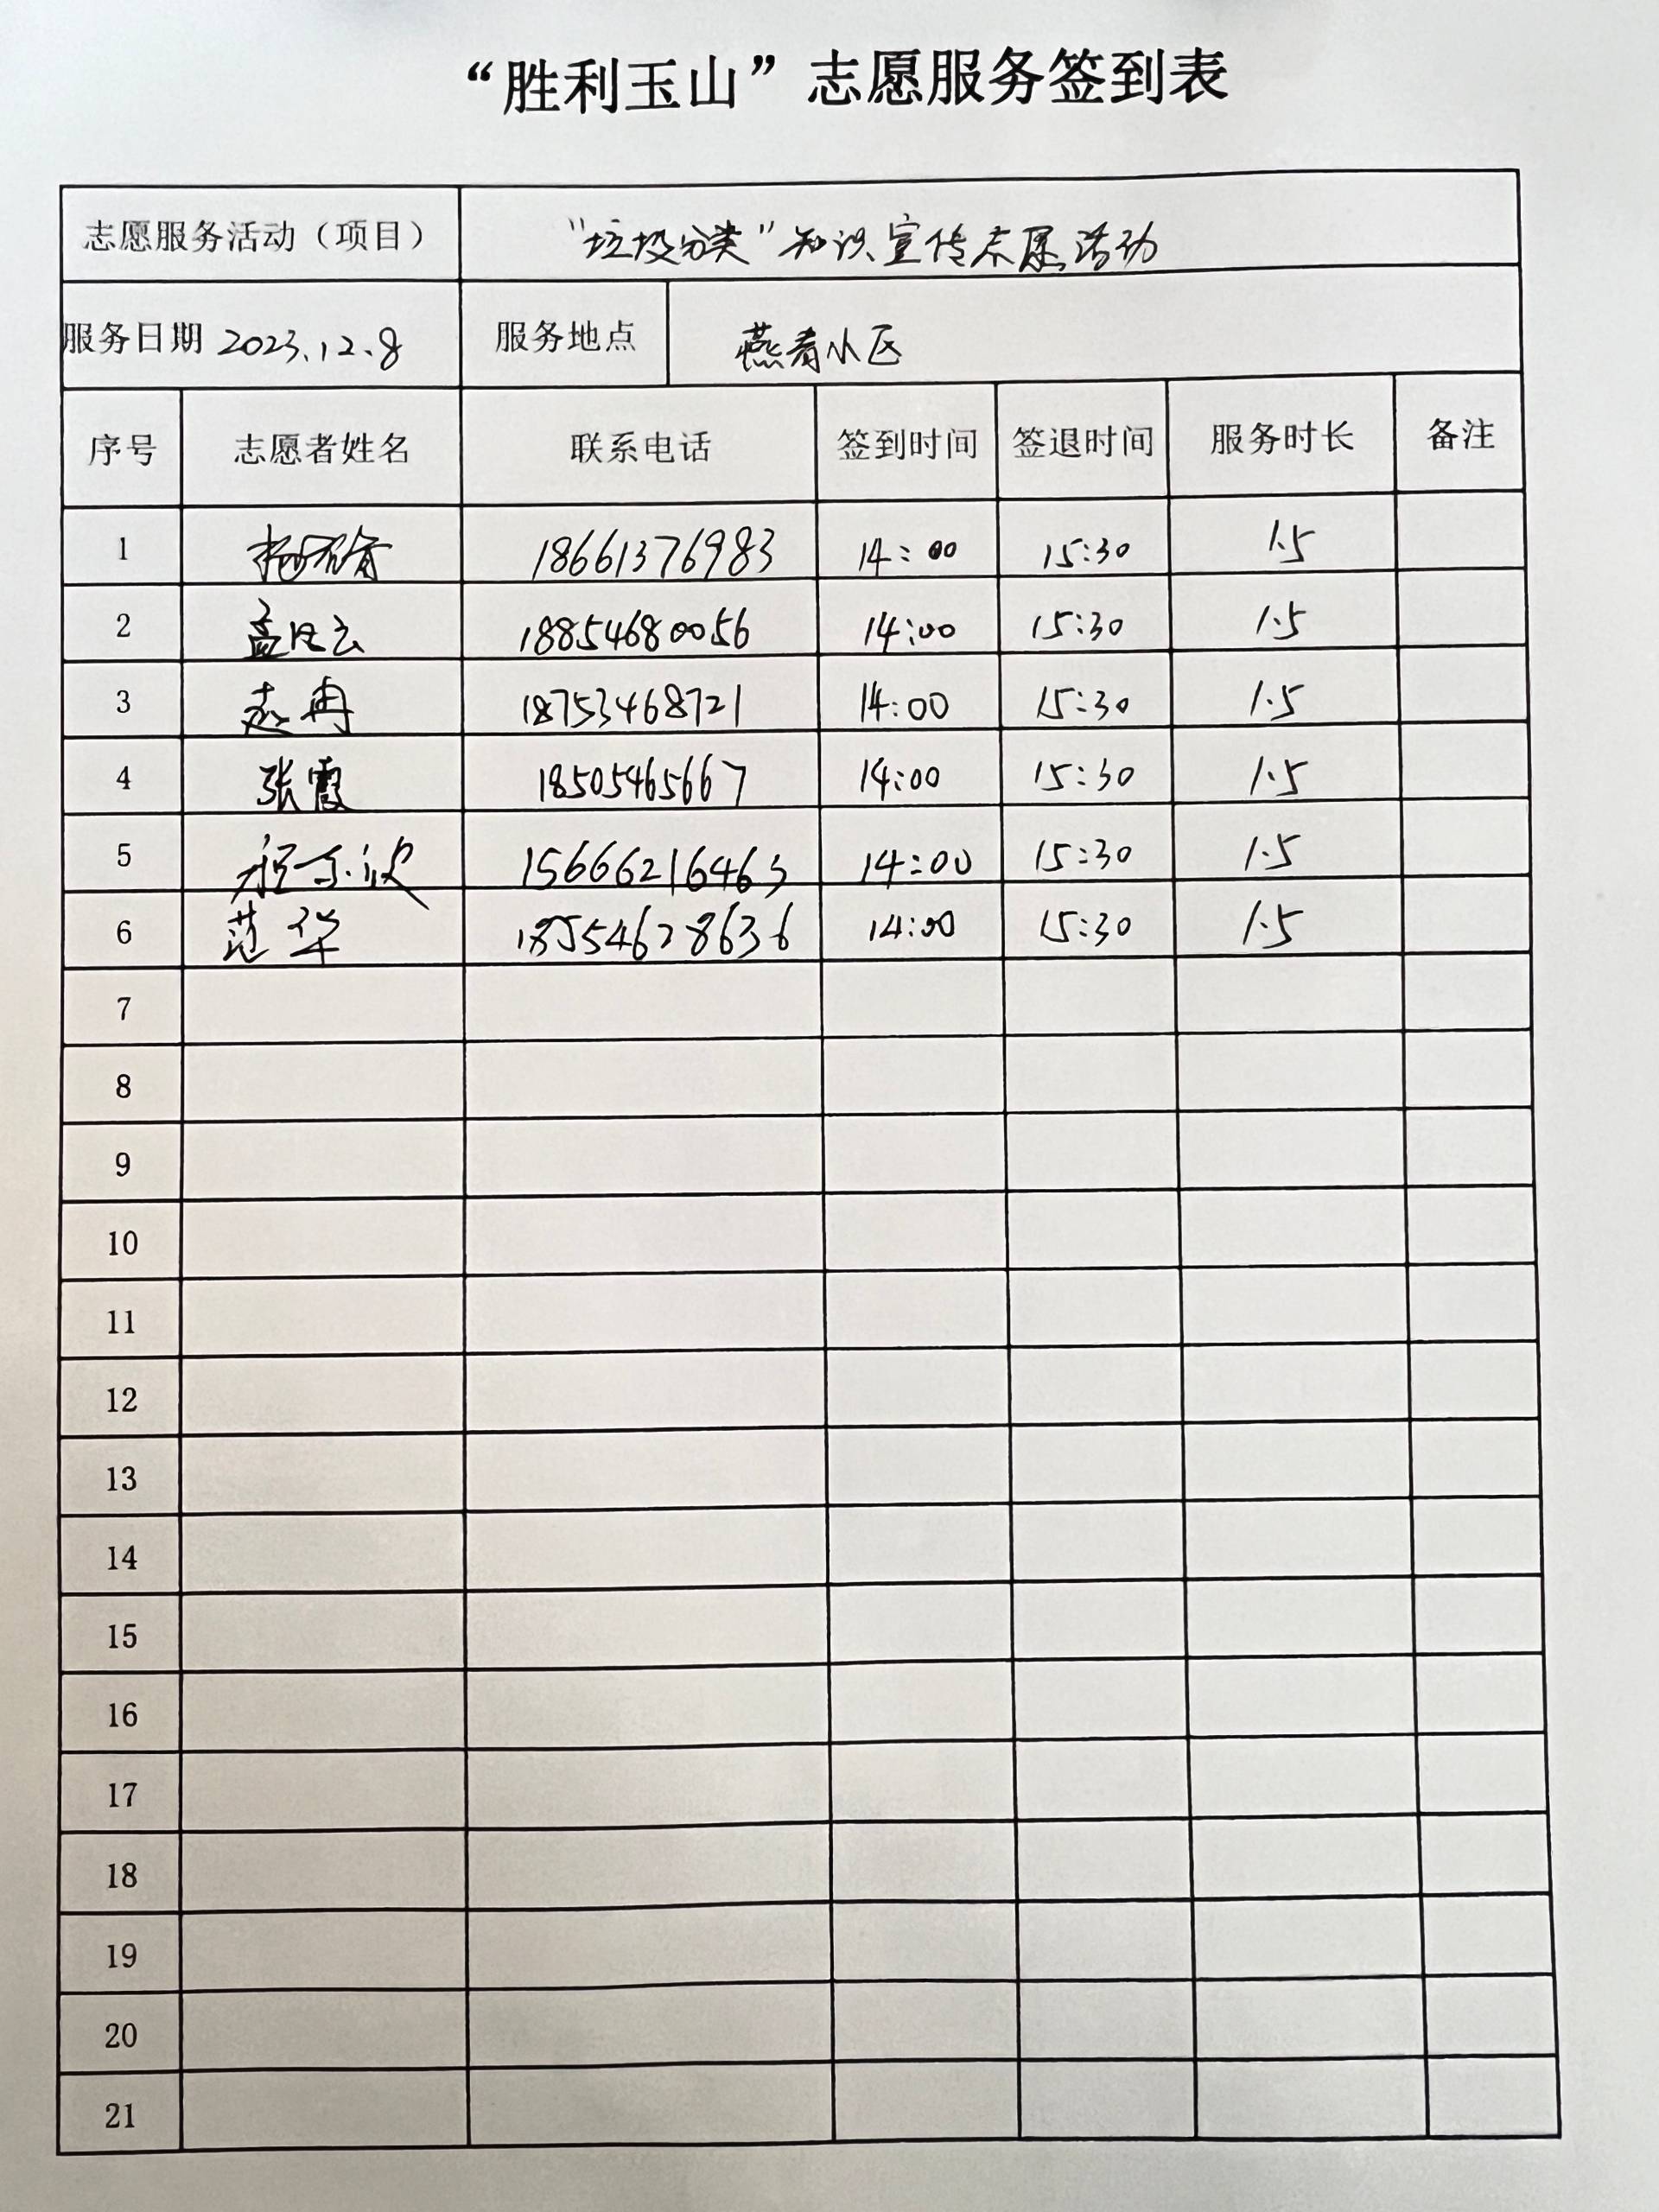 “胜利玉山”志愿服务签到表
志愿服务活动（项目） “垃圾分类”知识宣传志愿活动
服务日期 2023.12.8 服务地点 燕青小区
序号 志愿者姓名 联系电话 签到时间 签退时间 服务时长 备注
1 18661376983 14:00 15:30 1.5
2 孟 云 18854680056 14:00 15:30 1.5
3 赵冉 18753468721 14:00 15:30 1.5
4 张霞 18505465667 14:00 15:30 1.5
5 15666216463 14:00 15:30 1.5
6 范华 18554628636 14:00 15:30 1.5
7
8
9
10
11
12
13
14
15
16
17
18
19
20
21